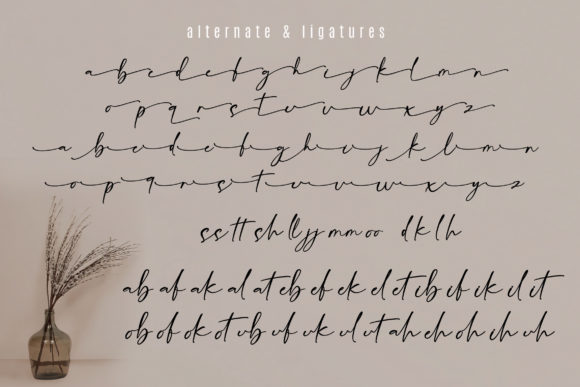 alternate & ligatures
a b c d e f g h i j k l m n
o p q r s t u v w x y z
a b c d e f g h i j k l m n
o p q r s t u v w x y z
ss tt sh ll jj mm oo d k l h
ab af ak al at eb ef ek el et ib if ik il it
ob of ok ot ub uf uk ul ut ah eh oh ih uh